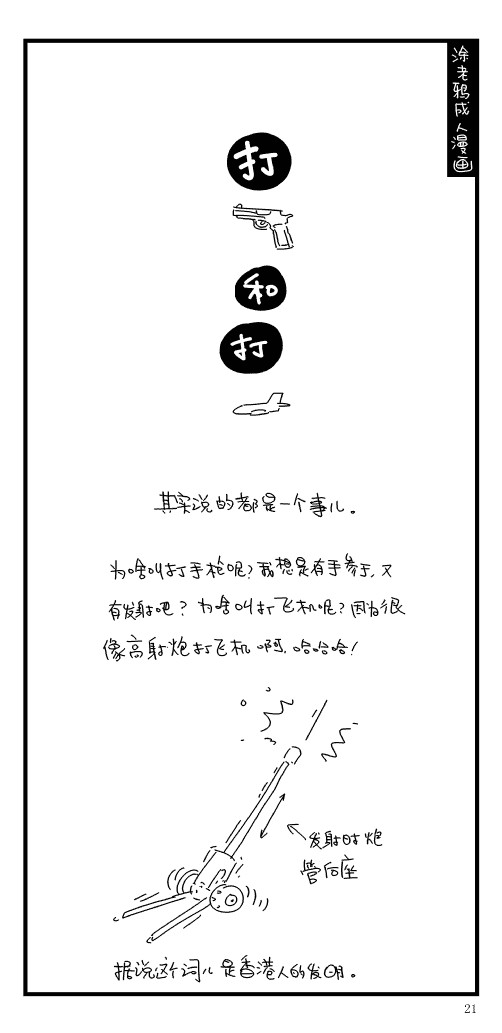 涂老鸦成人漫画
打
和
打
其实说的都是一个事儿。
为啥叫打手枪呢？我想是有手参于，又
有发射吧？为啥叫打飞机呢？因为很
像高射炮打飞机啊，哈哈哈！
发射时炮
管后座
据说这个词儿是香港人的发明。
21